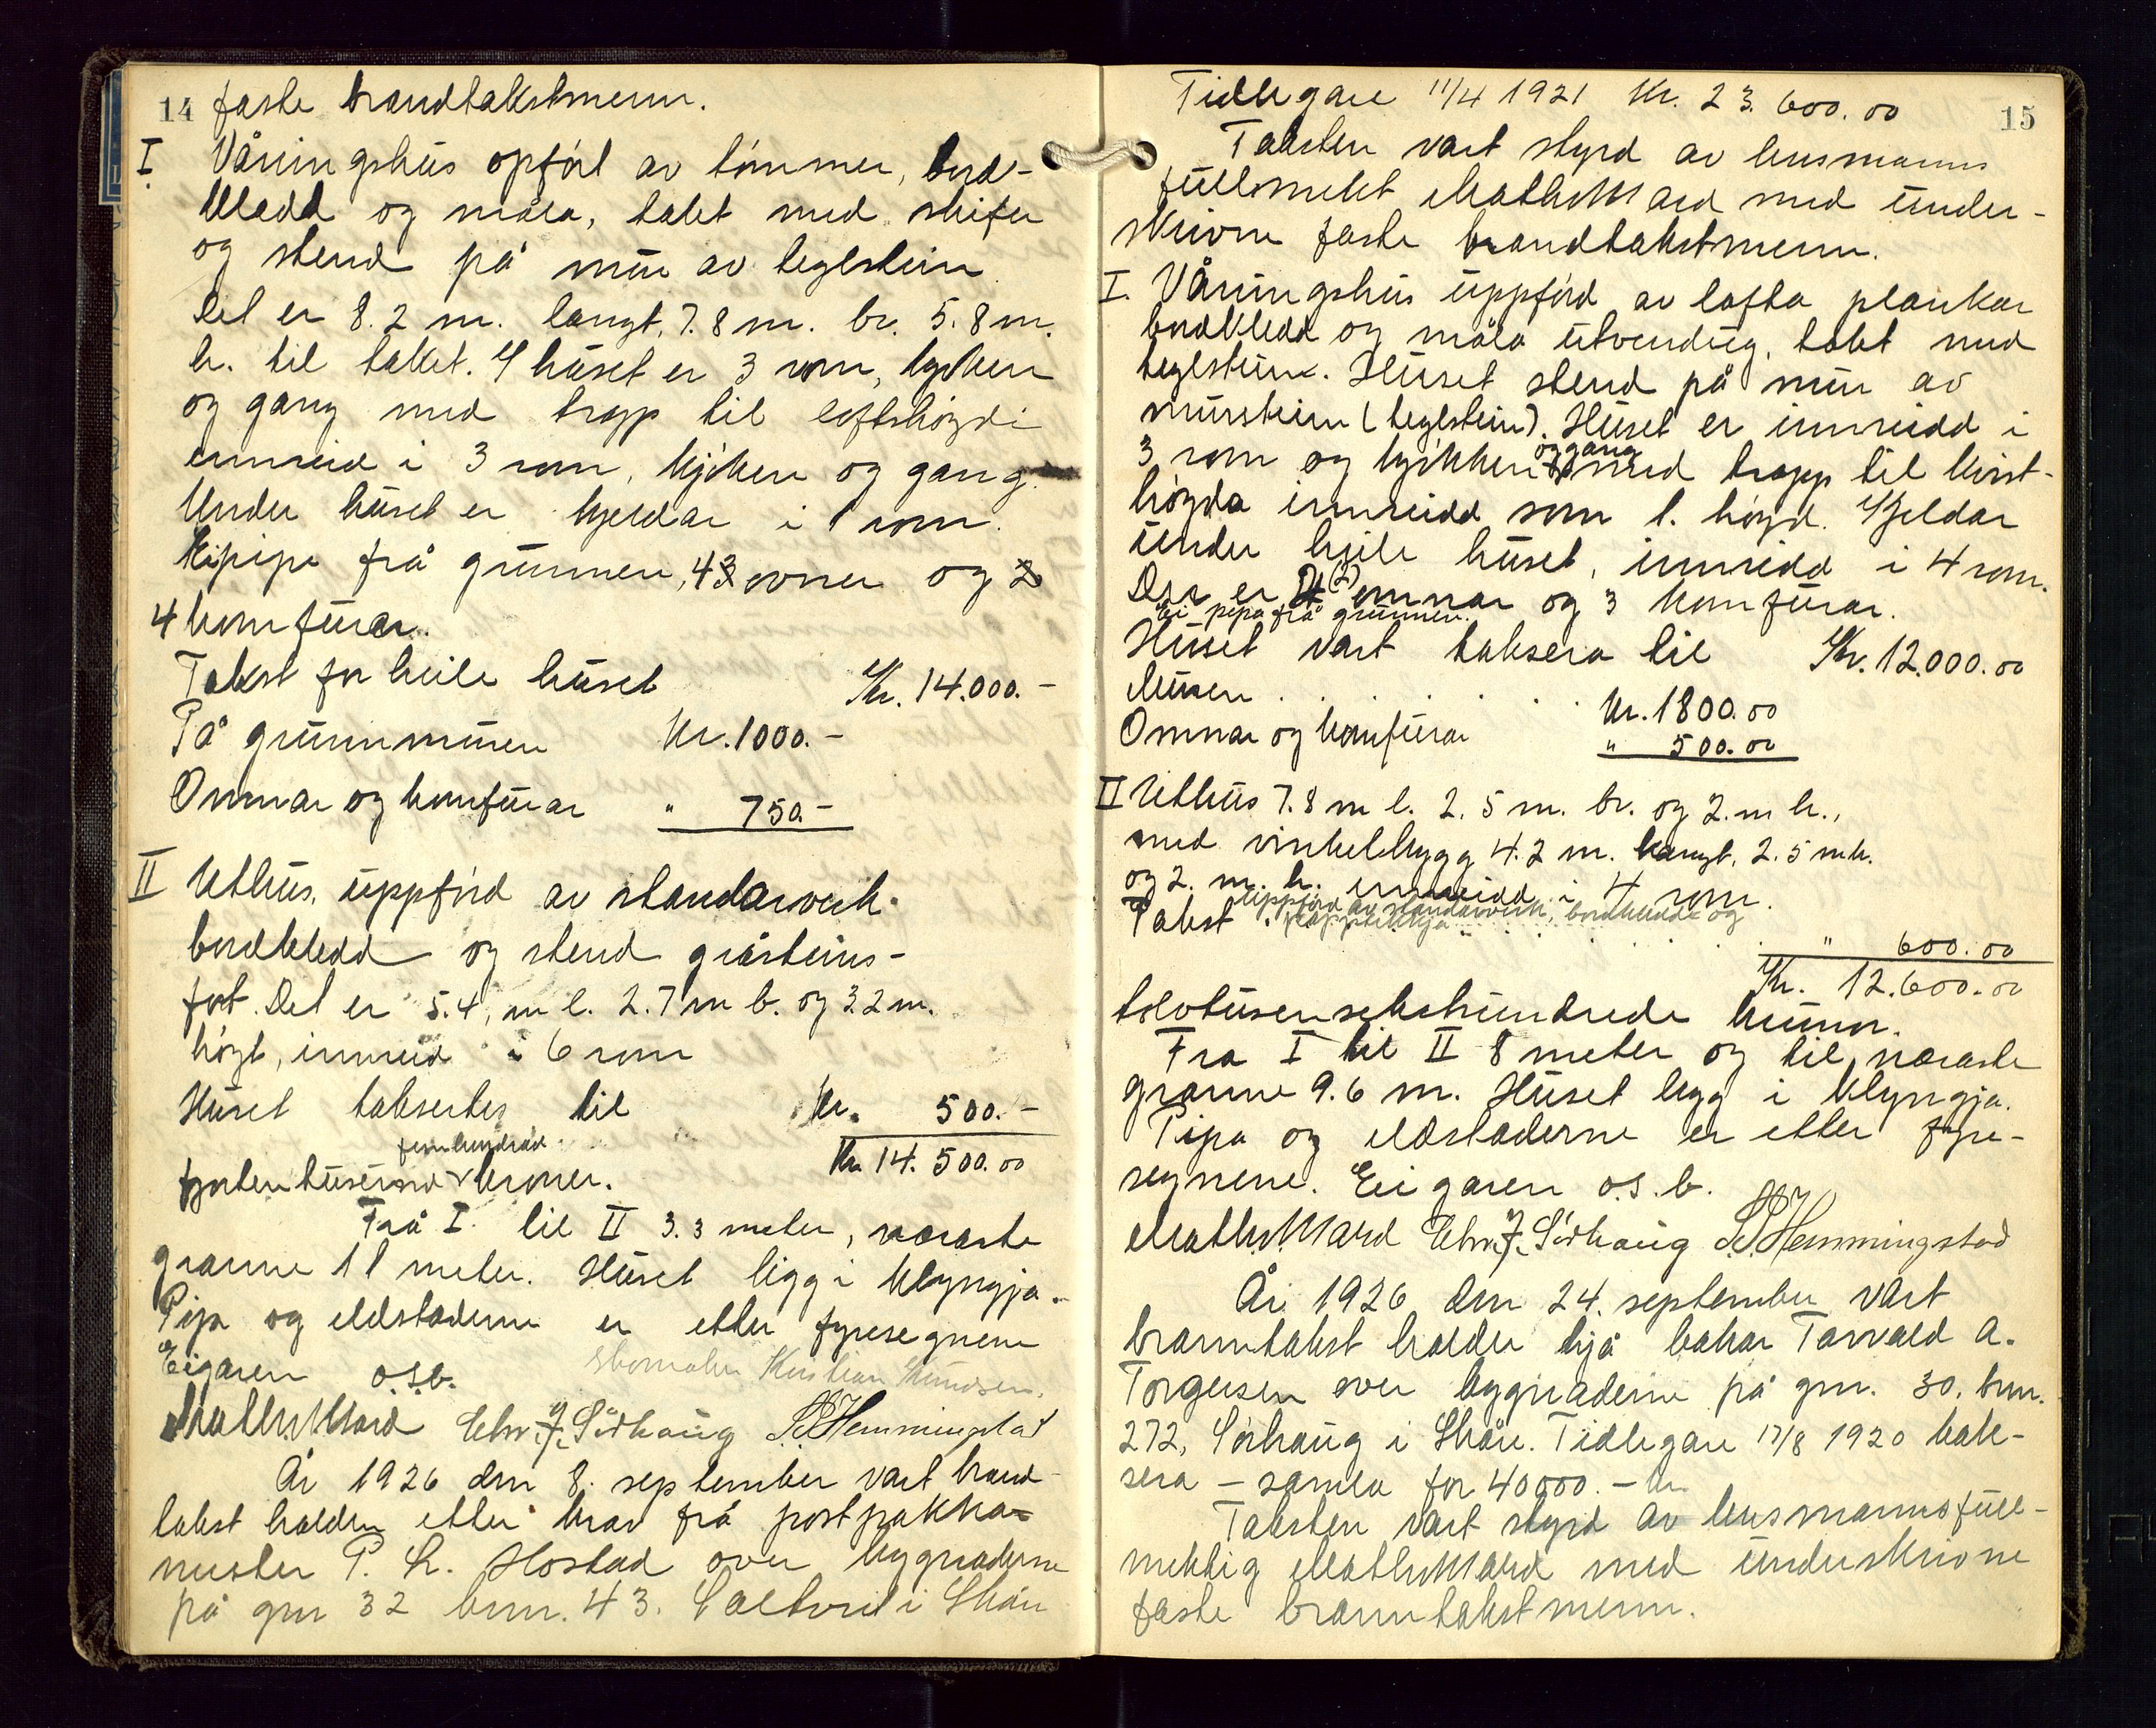 14 faste brandtakstmenn.
I Våningshus opført av tømmer, bord-
kledd og måla, tekt med skifer
og stend på mur av teglstein
Det er 8.2 m. langt, 7.8 m. br. 5.8 m.
h. til taket. I huset er 3 rom, kjøken
og gang med trapp til loftshøgdi
innreid i 3 rom, kjøken og gang.
Under huset er kjeldar i 1 rom.
Ei pipe frå grunnen, 4 3 ovner og 2
4 komfurar.
Takst for heile huset Kr. 14.000.-
På grunnmuren Kr. 1000.-
Omnar og komfurar " 750.-
II Uthus, uppførd av standarverk.
bordkledd og stend gråsteins-
fot. Det er 5.4, m l. 2.7 m b. og 3.2 m.
høgt, innreid i 6 rom
Huset taksertes til Kr. 500.-
Kr. 14.500.00
femhundrad
fjortentusund v kroner.
Frå I til II 3.3 meter, næraste
granne 11 meter. Huset ligg i klyngja.
Pipa og eldstaderne er etter fyresegnene
Eigaren o.s.b. Skomaker Kristian Knudsen.
Math. Mård Chr. J. Sørhaug S. J. Hemmingstad
År 1926 den 8. september vart brand-
takst halden etter krav frå postpakkha=
mester P. L. Hostad over bygnaderne
på gnr 32 bnr. 43. Saltveit i Skåre
Tidlegare 11/4 1921 Kr. 23.600.00 15
Taksten vart styrd av lensmanns
fullmekt Math. Mård med under-
skrivne faste brandtakstmenn.
I. Våningshus uppførd av lafta plankar
bordkledd og måla utvendug, tekt med
teglstein. Huset stend på mur av
murstein (teglstein). Huset er innreidd i
og gang
3 rom og kjøkken med trapp til kvist-
høgda innreidd som 1. høgd. Kjeldar
under heile huset, innreidd i 4 rom.
Der er (2) omnar og 3 komfurar.
Ei pipa frå grunnen.
Huset vart taksera til Kr. 12.000.00
Muren . . . . . Kr. 1800.00
Omnar og komfurar " 500.00
II Uthus 7.8 m l. 2.5 m. br. og 2. m h.,
med vinkelbygg 4.2 m. langt, 2.5 m br.
og 2. m. h. innreidd i 4 rom.
Uppførd av standarverk, bordkledd og
papptekkja
Takst . . . . . . . " 600.00
Kr. 12.600.00
tolvtusensekshundrede kronor.
Fra I til II 8 meter og til næraste
granne 9.6 m. Huset ligg i klyngja.
Pipa og eldstaderne er etter fyre-
segnene. Eigaren o.s.b.
Math. Mård Chr. J. Sørhaug S. J. Hemmingstad
År 1926 den 24. september vart
branntakst halden hjå bakar Torvald A.
Torgersen over bygnaderne på gnr. 30. bnr.
272, Sørhaug i Skåre. Tidlegare 17/8 1920 tak-
sera – samla for 40000.– kr.
Taksten vart styrd av lensmannsfull-
mektig Math. Mård med underskrivne
faste branntakstmenn.